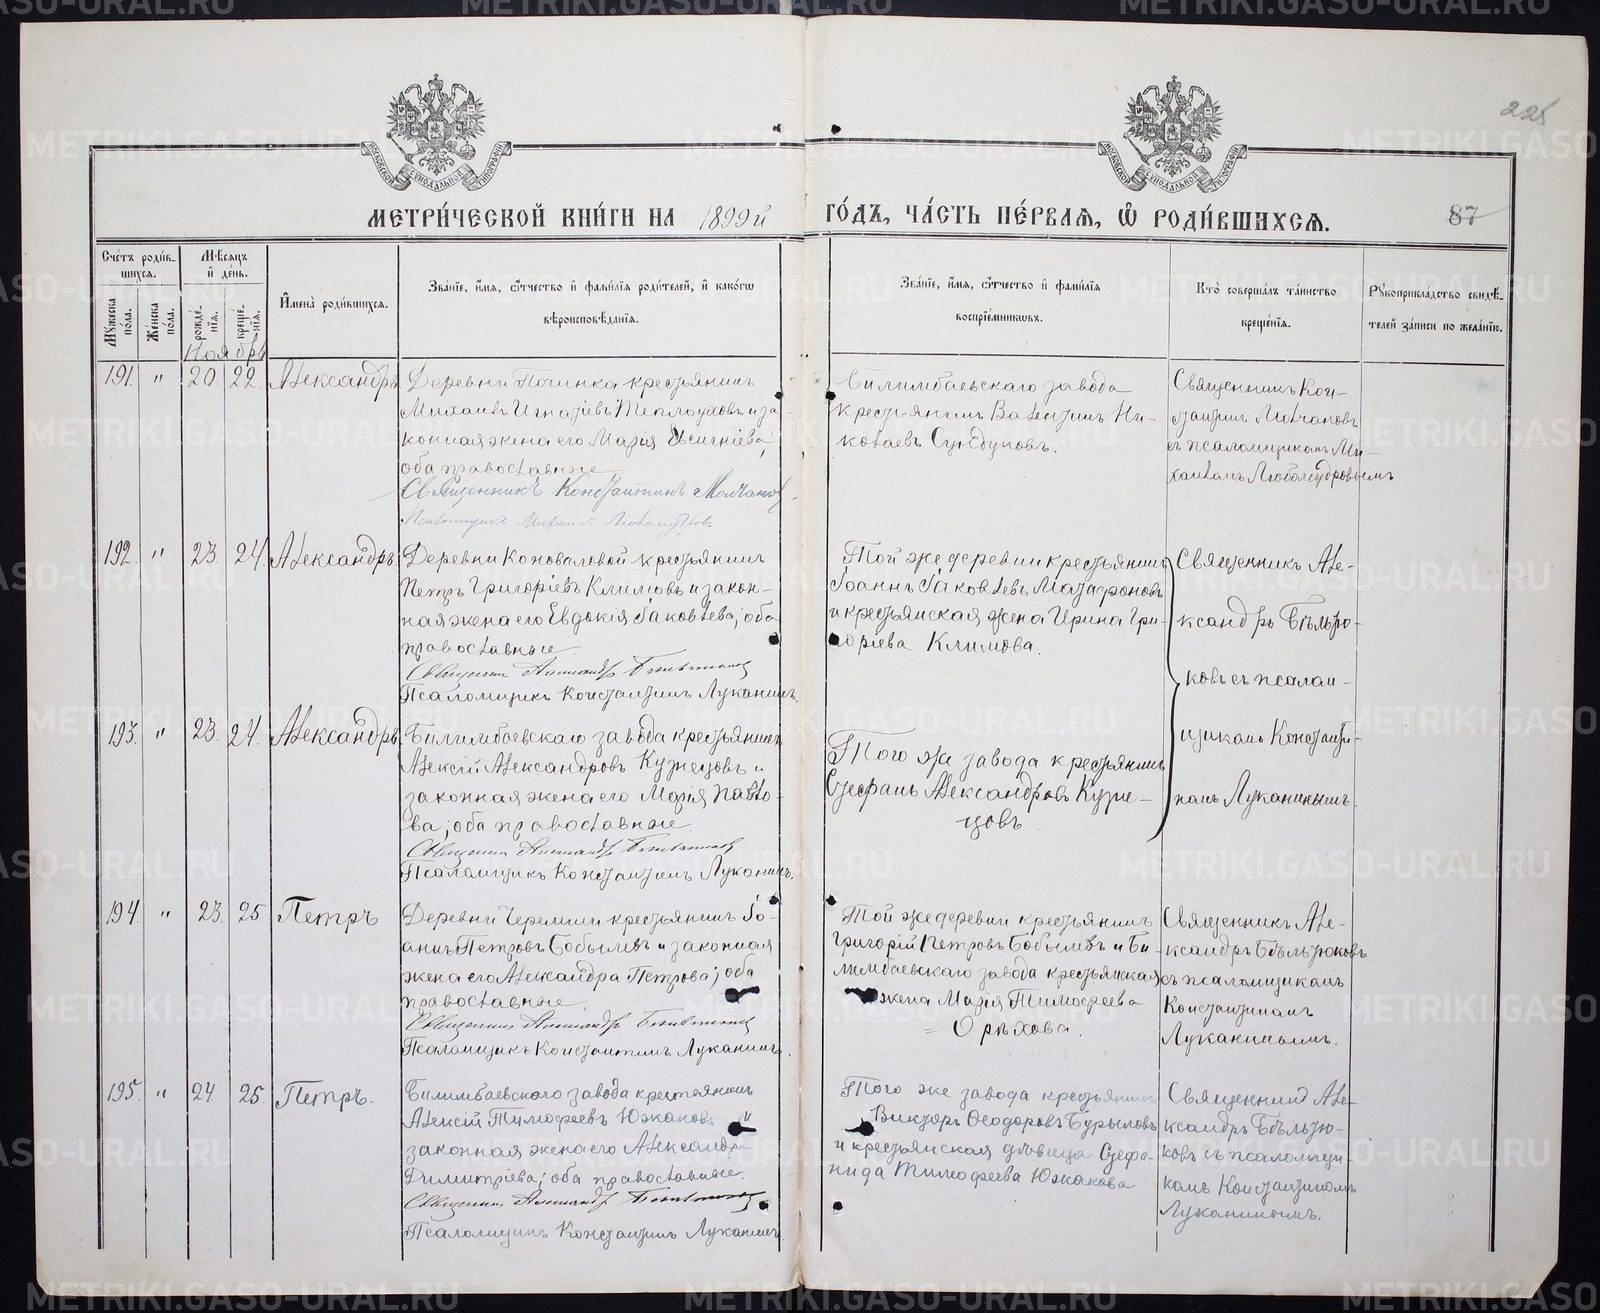 225
МЕТРИ́ЧЕСКОЙ КНИ́ГИ НА 1899й ГО́ДЪ, ЧА́СТЬ ПЕ́РВАЯ, Ѡ РОДИ́ВШИХСЯ.
87
Сче́тъ роди́вшихся.
Мѣ́сяцъ и де́нь.
Мужеска по́ла.
Женска по́ла.
рожде́нїя.
креще́нїя.
Имена̀ роди́вшихся.
Зва́нїе, и́мя, ѻ́тчество и фами́лїя роди́телей, и како́гѡ
вѣроисповѣ́данїя.
Зва́нїе, и́мя, ѻ́тчество и фами́лїя
воспрїе́мниковъ.
Кто̀ соверша́лъ та́инство
креще́нїя.
Рукоприкла́дство свидѣ́-
телей за́писи по жела́нїю.
Ноябрь
191. " 20. 22. Александръ
Деревни Починка крестьянинъ
Михаилъ Игнатіевъ Теплоуховъ и за-
конная жена его Марія
оба православные
Священникъ Константинъ Молчановъ
Псаломщикъ Михаилъ Любомудровъ
Билимбаевскаго завода
крестьянинъ Валентинъ Ни-
колаевъ Сундуковъ.
Священникъ Кон-
стантинъ Молчановъ
съ псаломщикомъ Ми-
хаиломъ Любомудровымъ
192. " 23. 24. Александръ
Деревни Коноваловой крестьянинъ
Петръ Григоріевъ Климовъ и закон-
ная жена его Евдокія Іаковлева; оба
православные.
Священникъ Александръ Бѣльтюковъ
Псаломщикъ Константинъ Луканинъ.
Той же деревни крестьянинъ
Іоаннъ Іаковлевъ Матафоновъ
и крестьянская жена Ирина Гри-
горіева Климова.
Священникъ Але-
ксандръ Бѣльтю-
ковъ съ псалом-
щикомъ Константи-
номъ Луканинымъ.
193. " 23. 24. Александръ
Билимбаевскаго завода крестьянинъ
Алексій Александровъ Кузнецовъ и
законная жена его Марія Павло-
ва; оба православные.
Священникъ Александръ Бѣльтюковъ
Псаломщикъ Константинъ Луканинъ.
Того же завода крестьянинъ
Стефанъ Александровъ Кузне-
цовъ.
194 " 23. 25 Петръ
Деревни Черемши крестьянинъ Іо-
аннъ Петровъ Бобылевъ и законная
жена его Александра Петрова; оба
православные
Священникъ Александръ Бѣльтюковъ
Псаломщикъ Константинъ Луканинъ.
Той же деревни крестьянинъ
Григорій Петровъ Бобылевъ и Би-
лимбаевскаго завода крестьянская
жена Марія Тимофеева
Орѣхова.
Священникъ Але-
ксандръ Бѣльтюковъ
съ псаломщикомъ
Константиномъ
Луканинымъ.
195. " 24. 25. Петръ.
Билимбаевскаго завода крестьянинъ
Алексій Тимофеевъ Южаковъ и
законная жена его Александра
Димитріева; оба православные.
Священникъ Александръ Бѣльтюковъ
Псаломщикъ Константинъ Луканинъ
Того же завода крестьянинъ
Викторъ Ѳеодоровъ Бурыловъ
и крестьянская дѣвица Стефа-
нида Тимофеева Южакова
Священникъ Але-
ксандръ Бѣльтю-
ковъ съ псаломщи-
комъ Константиномъ
Луканинымъ.
METRIKI.GASO-URAL.RU